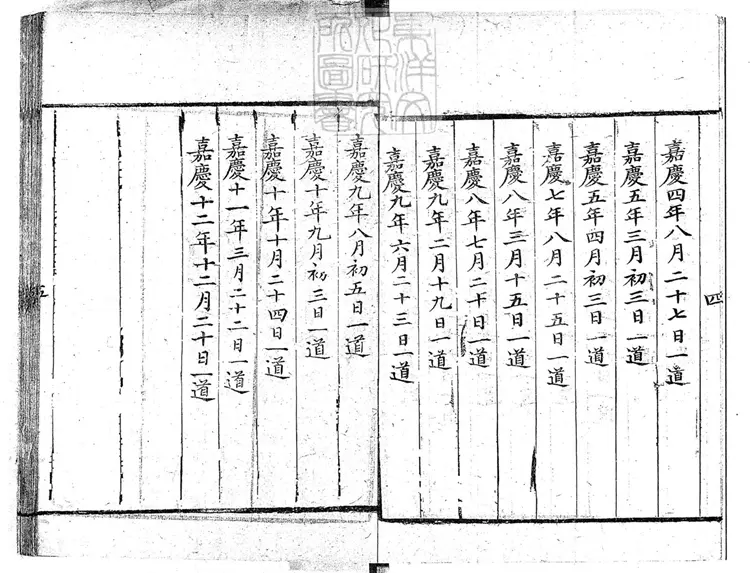 四
嘉慶四年八月二十七日一道
嘉慶五年三月初三日一道
嘉慶五年四月初三日一道
嘉慶七年八月二十五日一道
嘉慶八年三月十五日一道
嘉慶八年七月二十日一道
嘉慶九年二月十九日一道
嘉慶九年六月二十三日一道
嘉慶九年八月初五日一道
嘉慶十年九月初三日一道
嘉慶十年十月二十四日一道
嘉慶十一年三月二十二日一道
嘉慶十二年十二月二十日一道
五